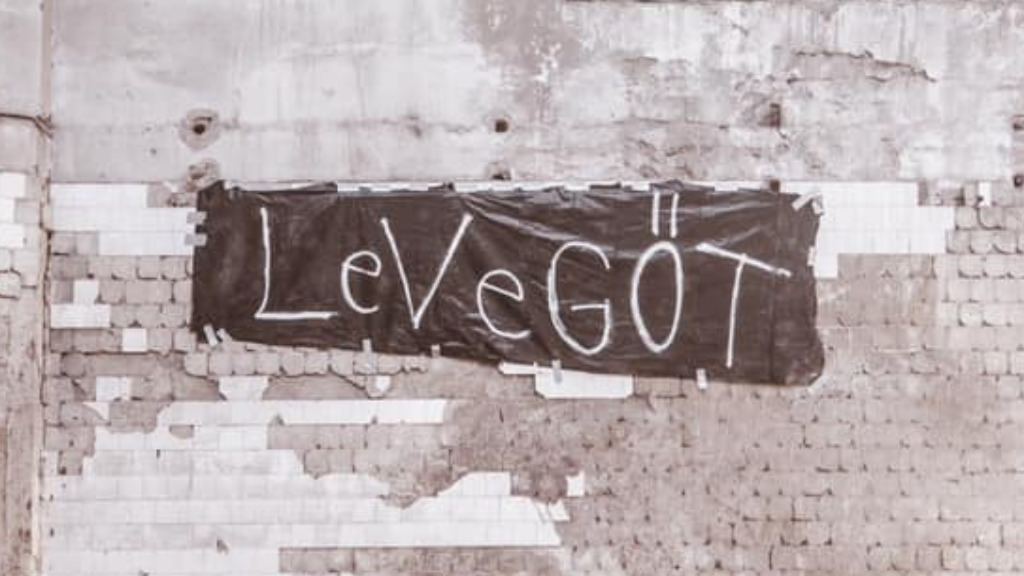 LeVeGŐT